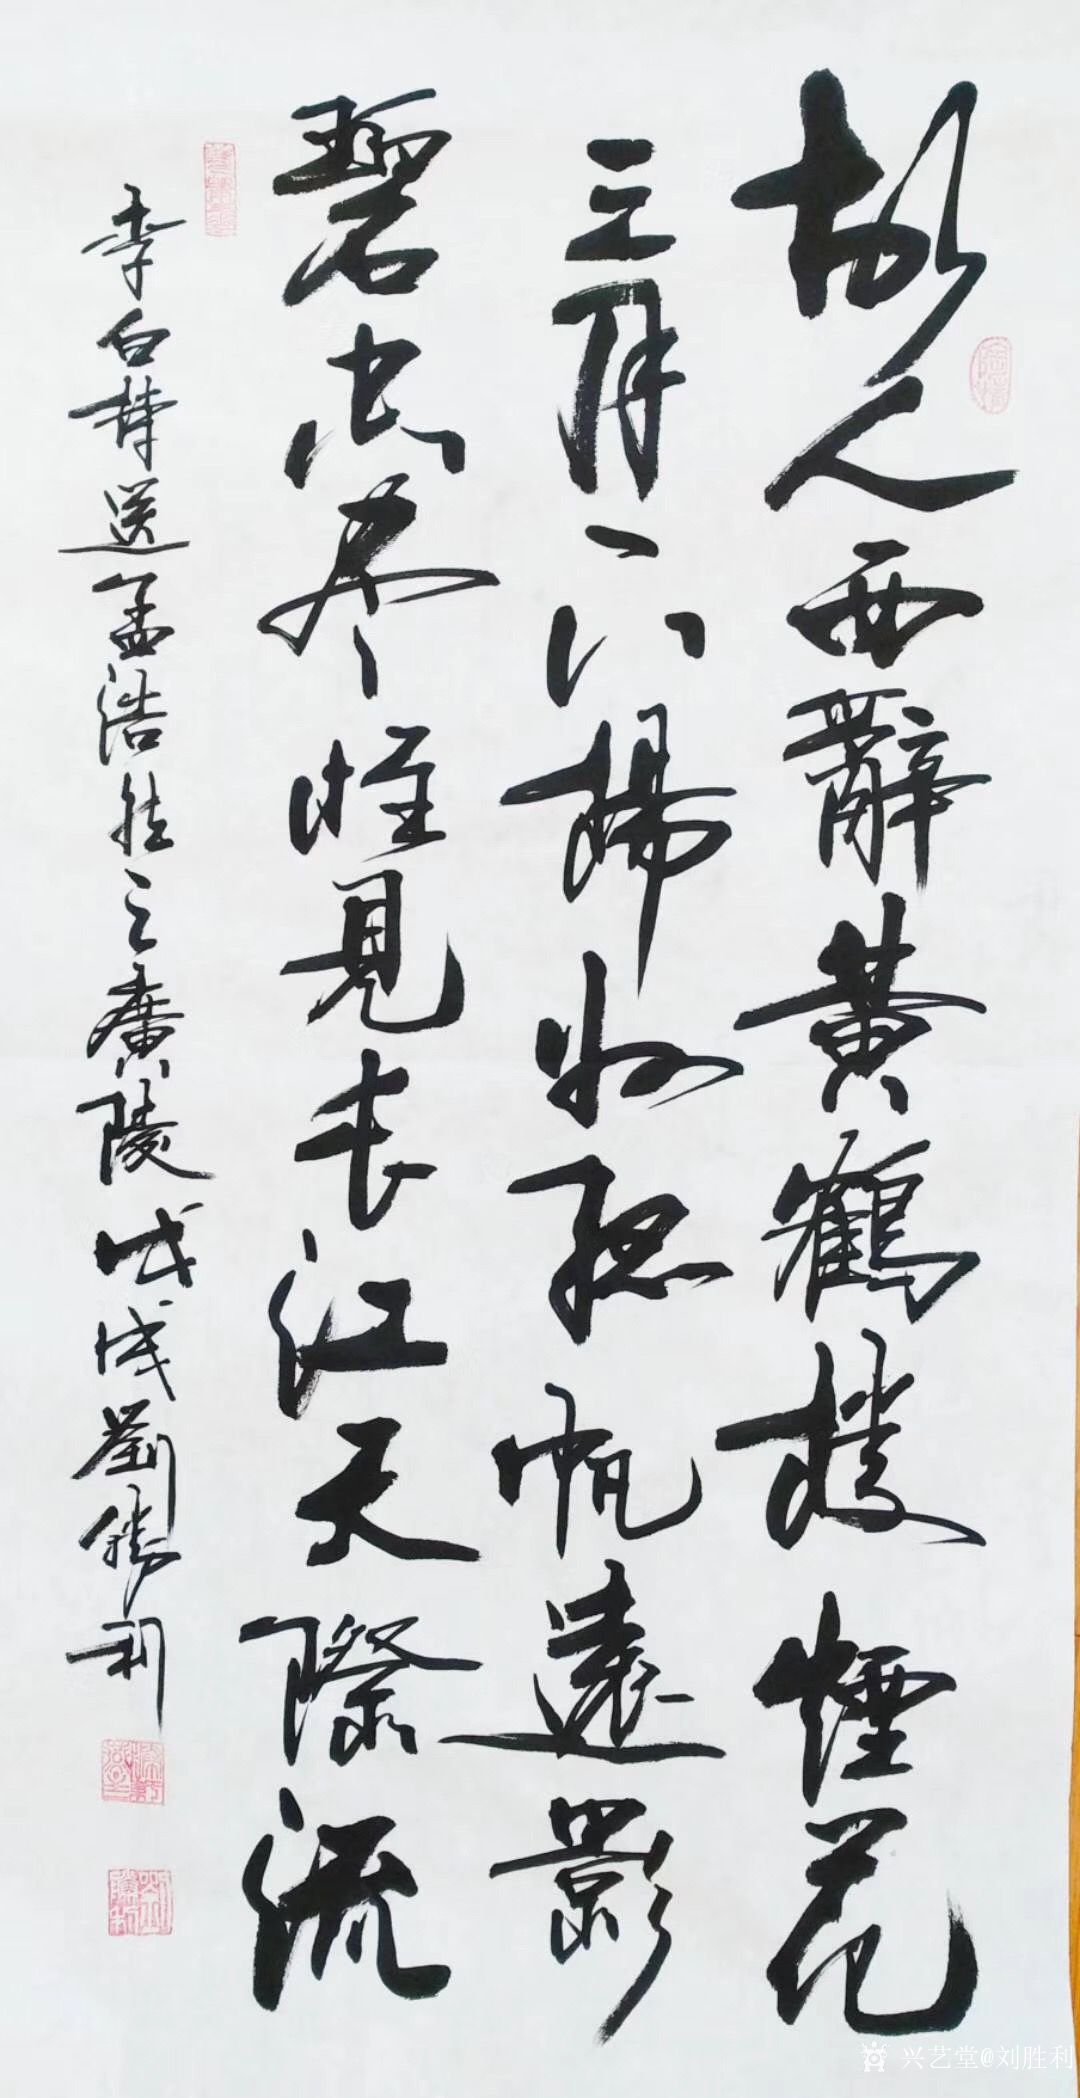 故人西辭黃鶴樓煙花
三月下揚州孤帆遠影
碧空尽唯見長江天際流
李白詩送孟浩然之廣陵戊戌劉勝利
兴艺堂@刘胜利